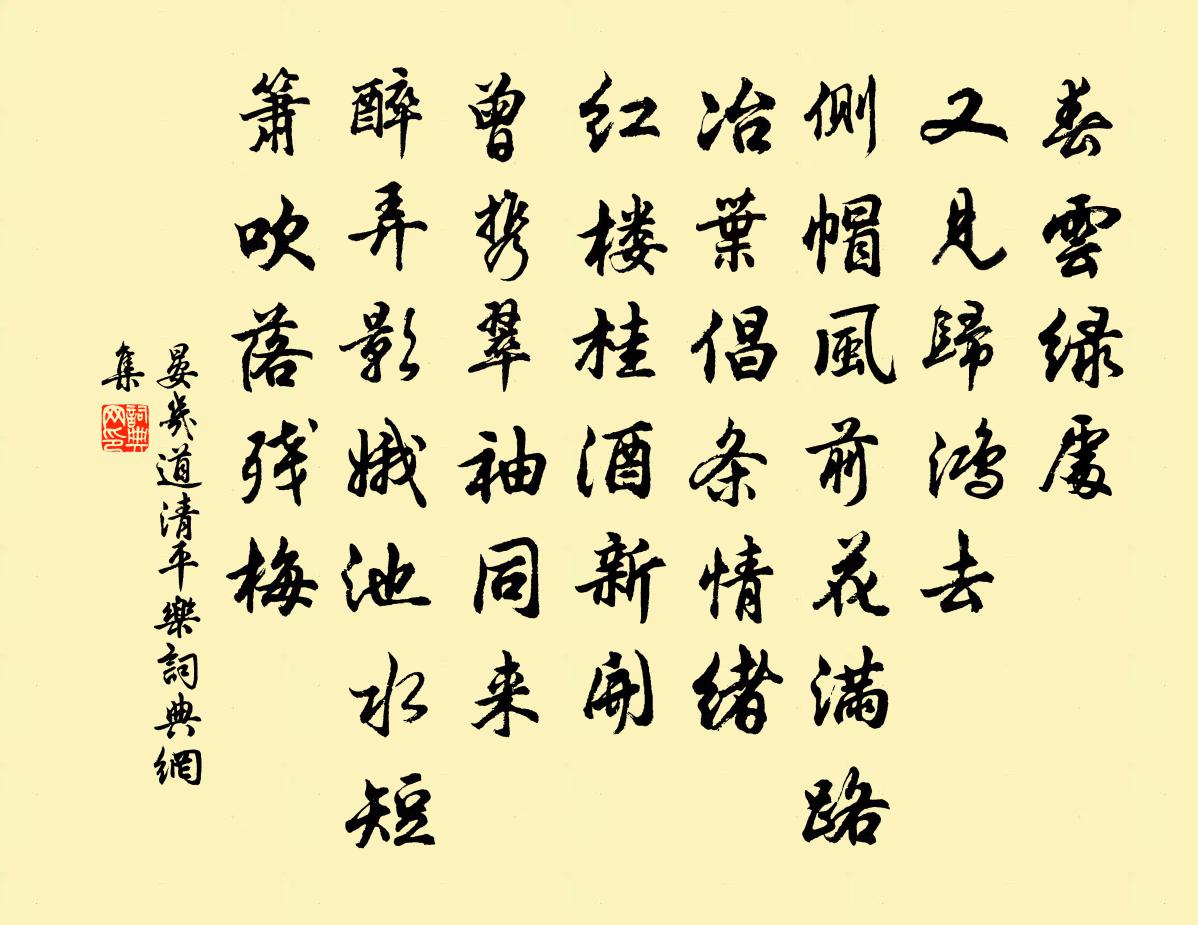 春雲绿處
又見歸鸿去
側帽風前花满路
冶葉倡条情緒
红楼桂酒新開
曾携翠袖同来
醉弄影娥池水短
簫吹落残梅
晏幾道清平樂詞典網
集
詞典网印